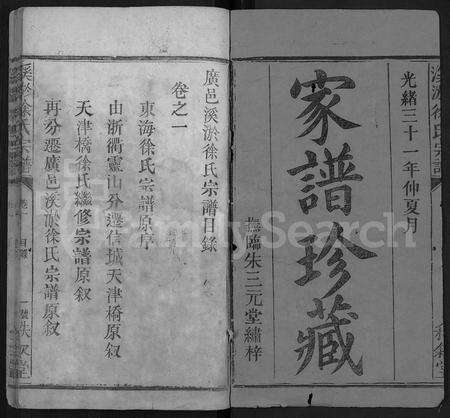 光緒三十一年仲夏月
家譜珍藏
撫臨朱三元堂繡梓
廣邑溪淤徐氏宗譜目錄
卷之一
東海徐氏宗譜原序
由浙衢靈山分遷信城天津橋原叙
天津橋徐氏繼修宗譜原叙
再分遷廣邑溪淤徐氏宗譜原叙
溪淤徐氏宗譜
卷一
目錄
FamilySearch